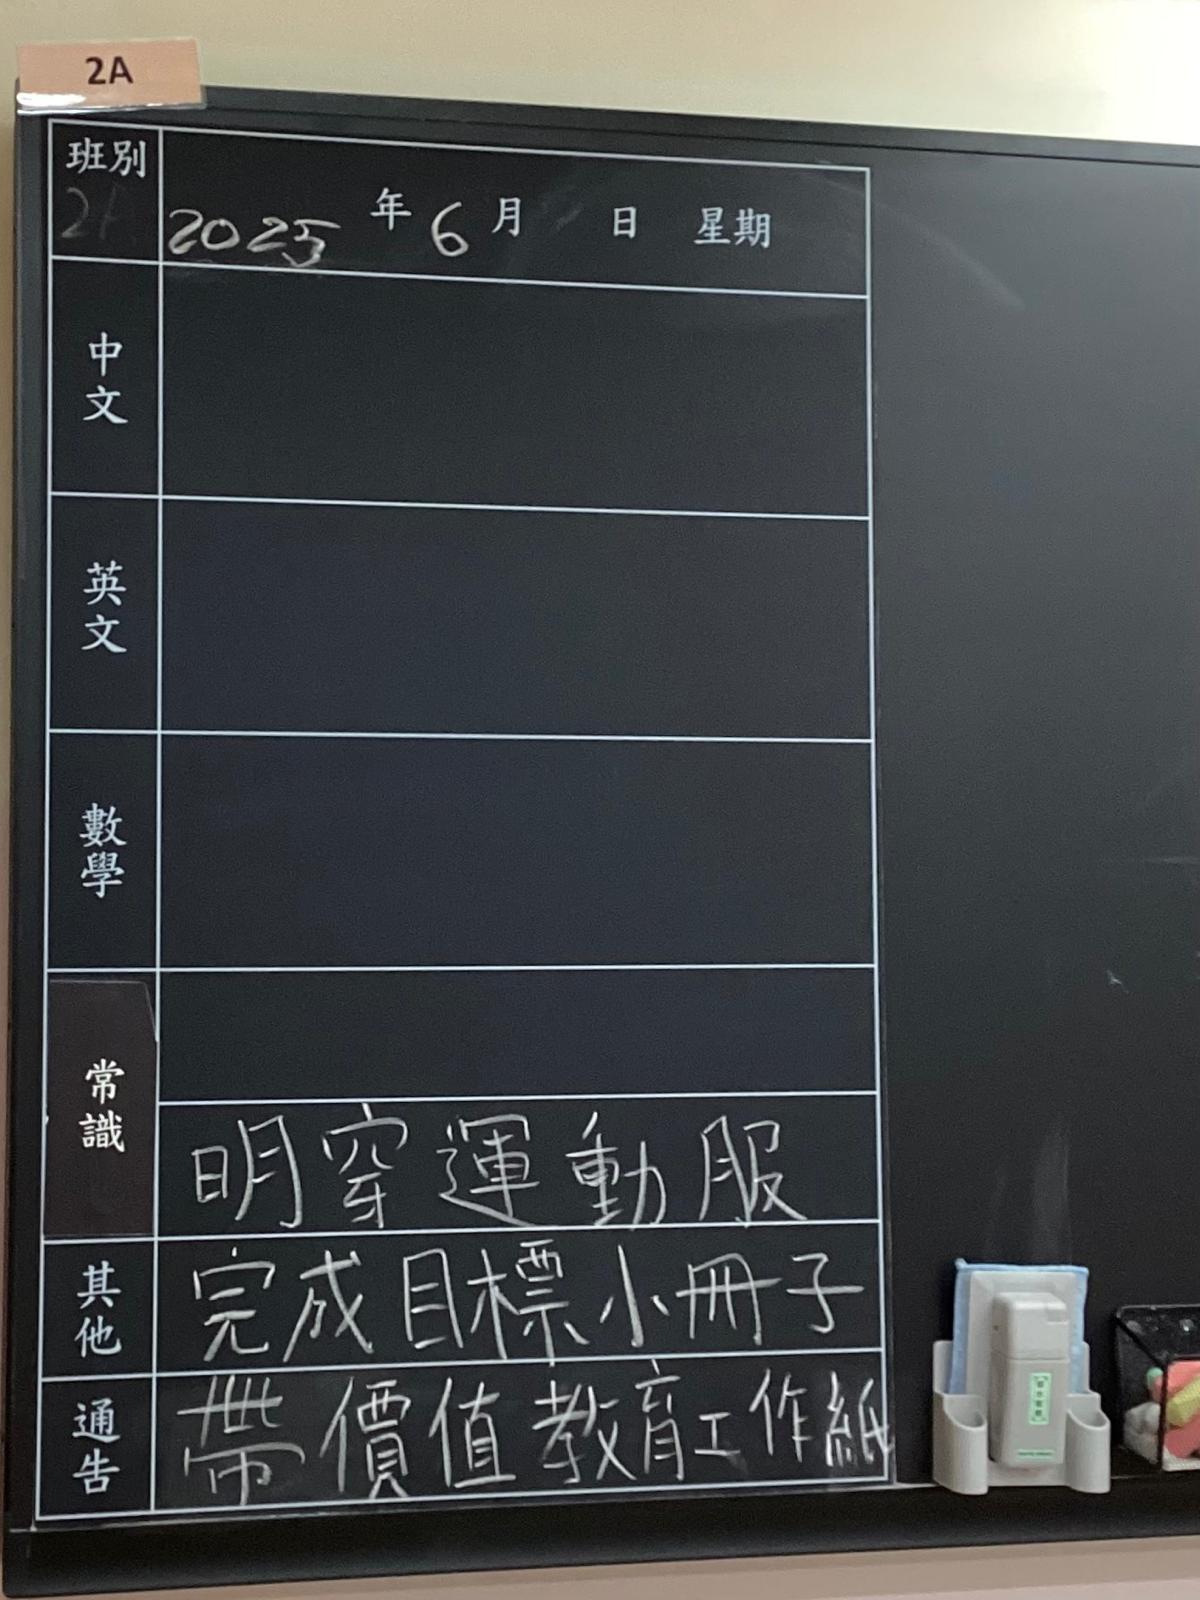 2A
班別
2A 2025 年 6 月 日 星期
中文
英文
數學
常識
明穿運動服
其他
完成目標小冊子
通告
帶價值教育工作紙